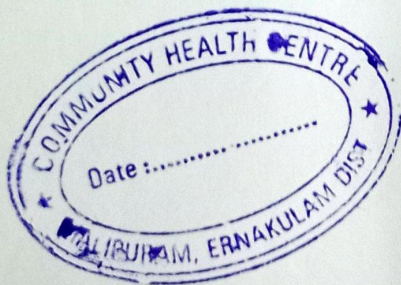 COMMUNITY HEALTH CENTRE
Date :....................
MALIPURAM, ERNAKULAM DIST